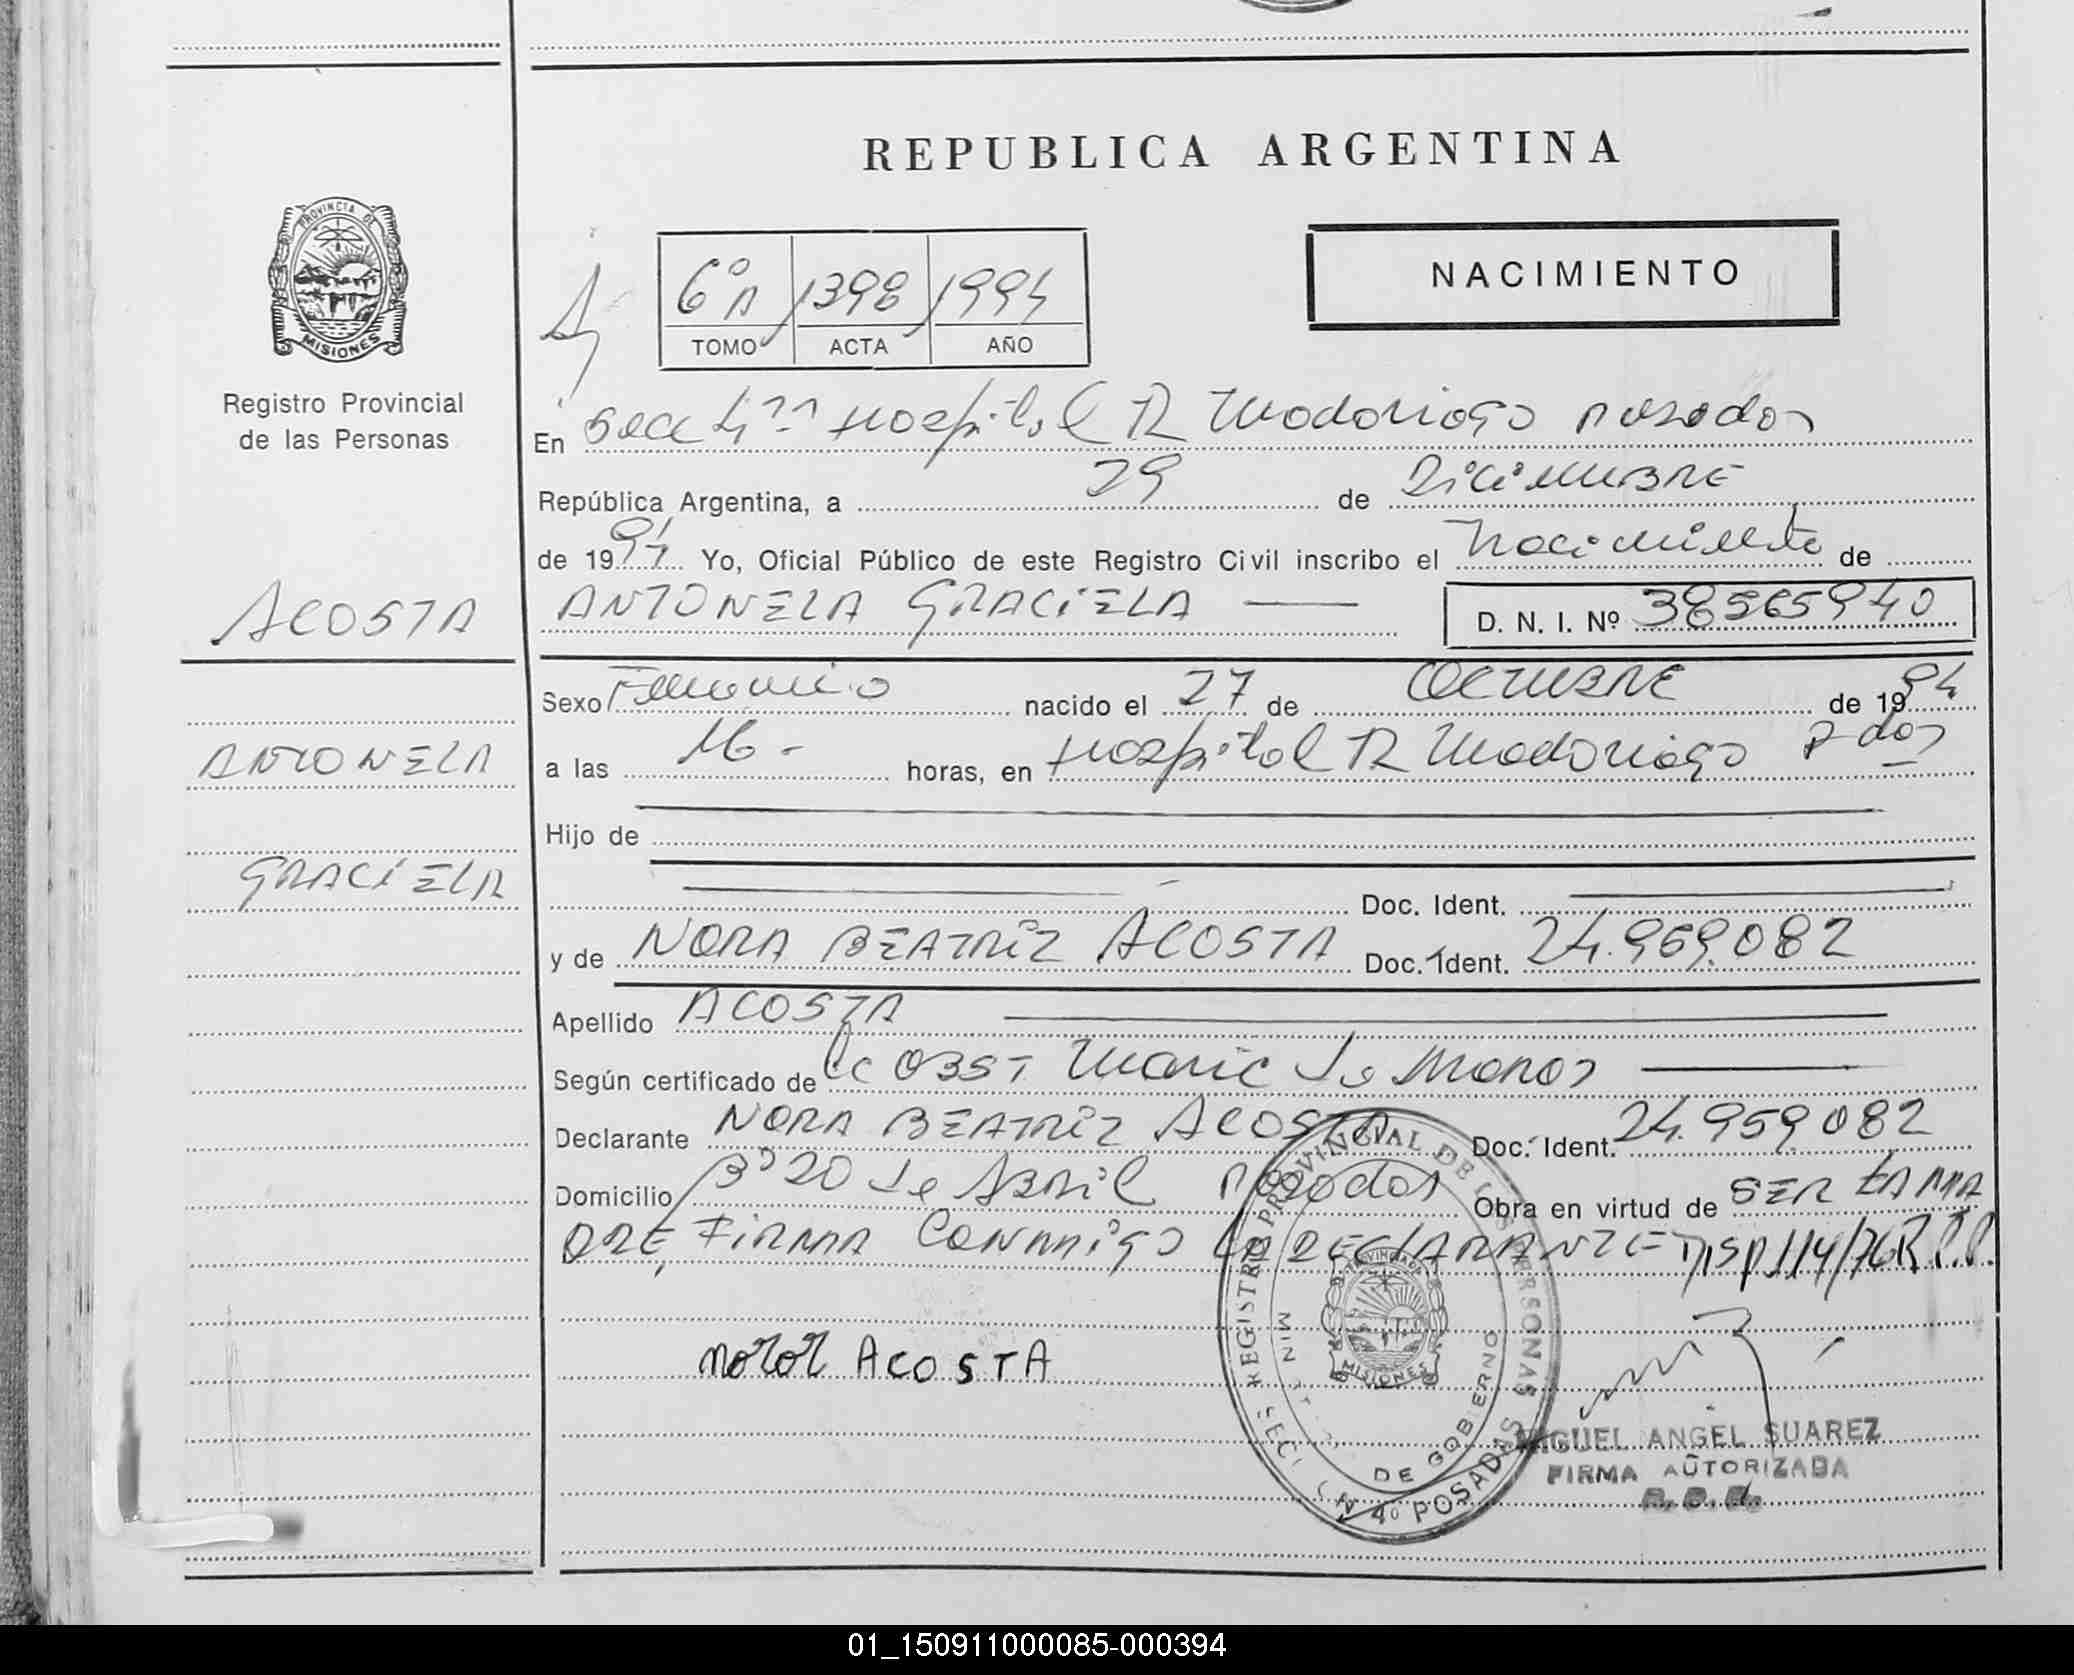 REPUBLICA ARGENTINA
PROVINCIA DE
MISIONES
Registro Provincial
de las Personas
6º A 1398 1994
TOMO ACTA AÑO
NACIMIENTO
En Secc 4ta Hospital R Madariaga Posadas
República Argentina, a 29 de Diciembre
de 1994 Yo, Oficial Público de este Registro Civil inscribo el Nacimiento de
ACOSTA
ANTONELA GRACIELA
D. N. I. Nº 38565940
Sexo Femenino nacido el 27 de OCTUBRE de 1994
ANTONELA
a las 16 - horas, en Hospital R Madariaga P-das
Hijo de
GRACIELA
Doc. Ident.
y de NORA BEATRIZ ACOSTA Doc. Ident. 24.959.082
Apellido ACOSTA
Según certificado de OBST Maria de
Declarante NORA BEATRIZ ACOSTA Doc. Ident. 24.959.082
Domicilio Bº 20 de Abril Posadas Obra en virtud de SER LA MA
DRE, FIRMA Conmigo LA DECLARANTE DISP 114/76 R.P.P.
Nora ACOSTA
REGISTRO PROVINCIAL DE LAS PERSONAS
DE GOBIERNO
PROVINCIA DE
MISIONES
SECCION 4º POSADAS
MIGUEL ANGEL SUAREZ
FIRMA AUTORIZADA
01_150911000085-000394